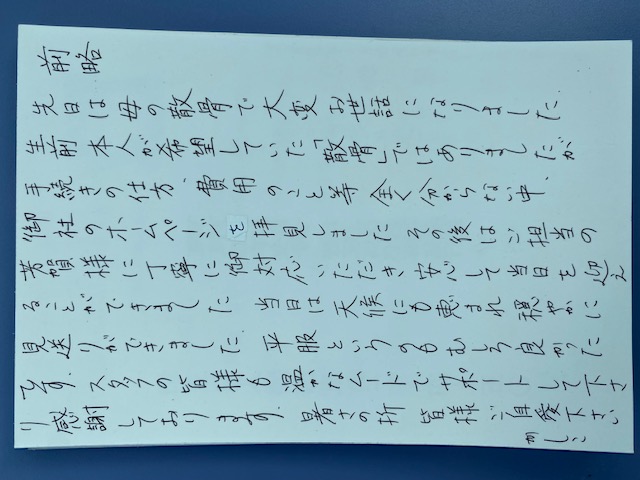 前略
先日は母の散骨で大変お世話になりました
生前本人が希望していた「散骨」ではありましたが
手続きの仕方、費用のこと等全く分からない中、
御社のホームページを拝見しました その後はご担当の
様に丁寧に御対応いただき安心して当日を迎え
ることができました 当日は天候にも恵まれ穏やかに
見送りができました 平服というのもむしろ良かった
です スタッフの皆様も温かなムードでサポートして下さ
り感謝しております 暑さの折 皆様ご自愛下さい
かしこ